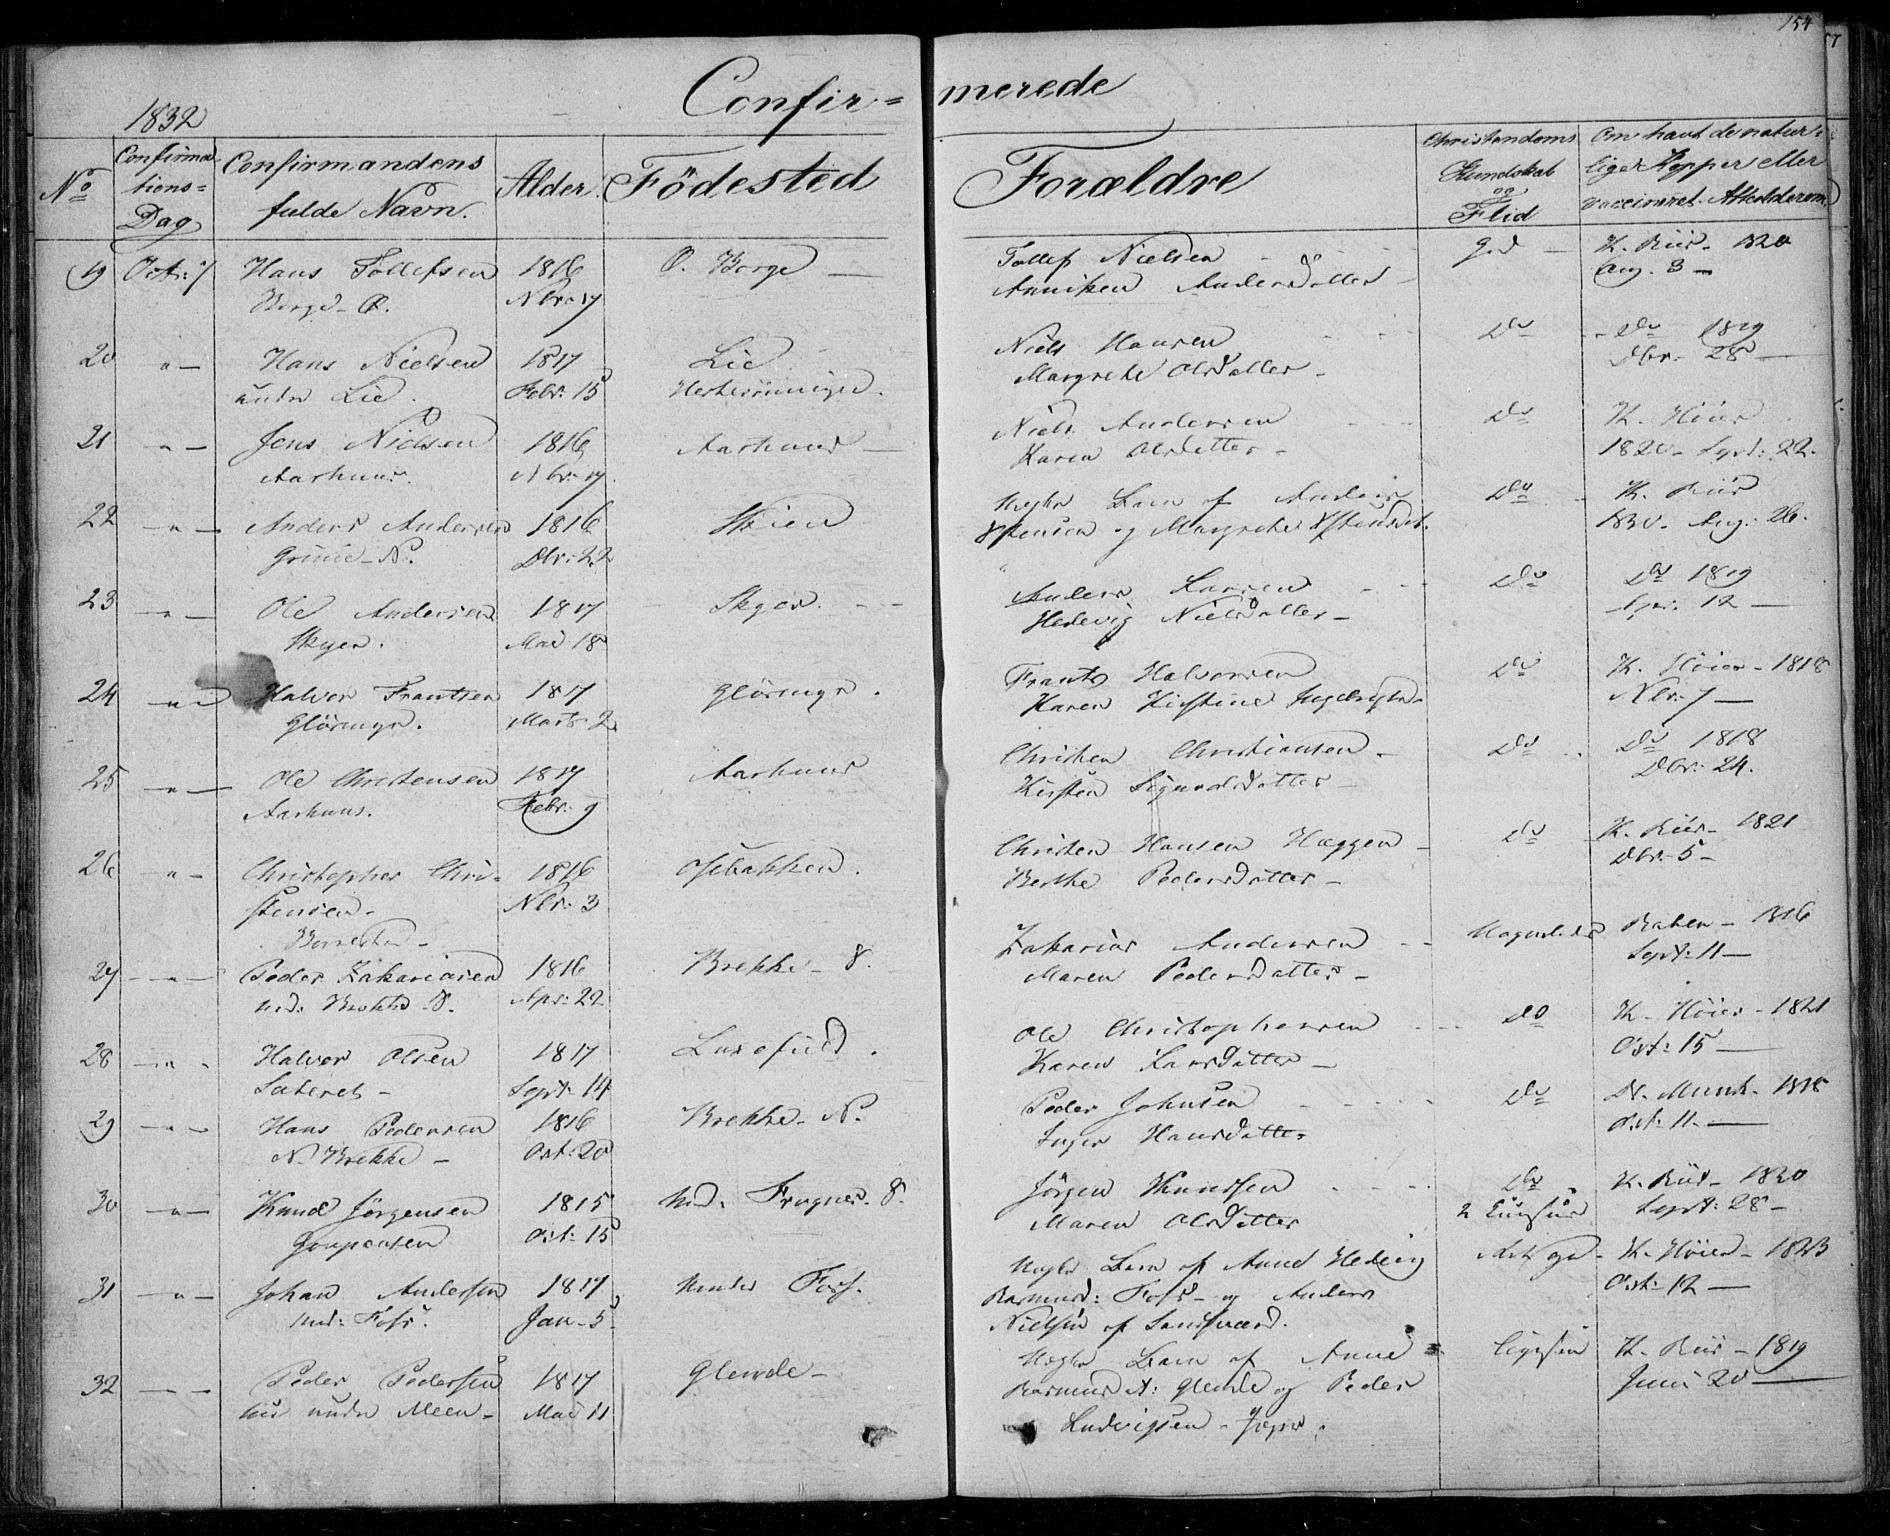 154
Confir= merede
1832
No
Confirma-
tions=
Dag
Confirmandens
fulde Navn.
Alder.
Födested
Forældre
Christendoms
Kundskab
og
Flid
Om havt de natur-
lige Kopper eller
vaccineret. Attester om
19 Oct: 7 Hans Tollefsen 1816 Ö. Borge — Tollef Nielsen God — K. Riis 1820
Borge Ö. Nbr: 17 Anniken Andersdatter Aug. 3 —
20 —"— Hans Nielsen 1817 Lie Niels Hansen Do Do 1819
under Lie. Febr: 15 Margrethe Olsdatter — Dbr: 28 —
21 —"— Jens Nielsen 1816 Aarhuus — Niels Andersen Do K. Höier
Aarhuus. Nbr: 17 Karen Olsdatter — 1820 — Sept: 22.
22 —"— Anders Andersen 1816 Skien Uægte Barn af Anders Do K. Riis
N. Dbr: 22 og Margrethe 1830 — Aug: 26.
23 —"— Ole Andersen 1817 Skyer. Anders Larsen Do Do 1819
Skyer. Mai 18 Hedevig Nielsdatter — Apr: 12 —
24 —"— Halvor Frantsen 1817 Glöringe. Frants Halvorsen Do K. Höier — 1818
Glöringe. Marts 2 Karen Kirstine Nbr: 7 —
25 —"— Ole Christensen 1817 Aarhuus Christen Christiansen — Do Do 1818
Aarhuus. Febr: 9 Kirsten Sigurdsdatter — Dbr: 24.
26 —"— Christopher Chri- 1816 Osebakken. Christen Hansen Haggen — Do K. Riis — 1821
stensen — Nbr: 3 Berthe Pedersdatter — Dbr: 5 —
27 —"— Peder Zakariasen 1816 Brekke — S. Zakarias Andersen Maadelig Raben — 1816
und: Brekke S. Apr: 22 Maren Pedersdatter — Sept: 11 —
28 —"— Halvor Olsen 1817 Ole Christophersen Do K. Höier — 1821
Sept: 14 Karen Larsdatter — Oct: 15 —
29 —"— Hans Pedersen 1816 Brekke N. Peder Johnsen Do Dr. Munk — 1818
N. Brekke — Oct: 20 Inger Hansdatter Oct: 11 —
30 —"— Knud Jörgensen 1815 und: Frogner S. Jörgen Knudsen Do K. Riis — 1830
Oct: 15 Maren Olsdatter Sept: 28 —
31 —"— Johan Andersen 1817 under Foss. Uægte Barn af Anne Hedevig K. Höier — 1823
und: Foss. Jan — 5 Rasmusd: Foss — og Anders Oct: 12 —
Nielsen af Sandsværd.
32 — — Peder Pedersen 1817 Glende — Uægte Barn af Anne K. Riis — 1819
under Meen — Mai 11 Rasmusdt: Glende og Peder Juni 20 —
Ludvigsen —